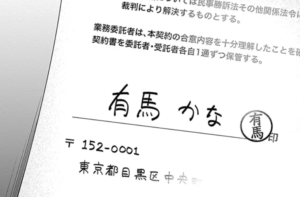 いては民事訴訟法その他関係法令に
裁判により解決するものとする。
業務委託者は、本契約の合意内容を十分理解したことを確
契約書を委託者・受託者各自1通ずつ保管する。
有馬 かな 有馬 印
〒 152-0001
東京都目黒区中央